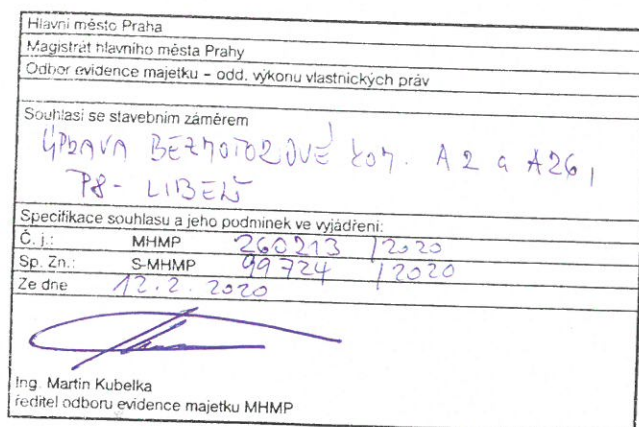 Hlavní město Praha
Magistrát hlavního města Prahy
Odbor evidence majetku – odd. výkonu vlastnických práv
Souhlasí se stavebním záměrem
ÚPRAVA BEZMOTOROVÉ KOM. A2 a A26,
P8- LIBEŇ
Specifikace souhlasu a jeho podmínek ve vyjádření:
Č. j.: MHMP 260213 /2020
Sp. Zn.: S-MHMP 99724 /2020
Ze dne 12.2.2020
Ing. Martin Kubelka
ředitel odboru evidence majetku MHMP